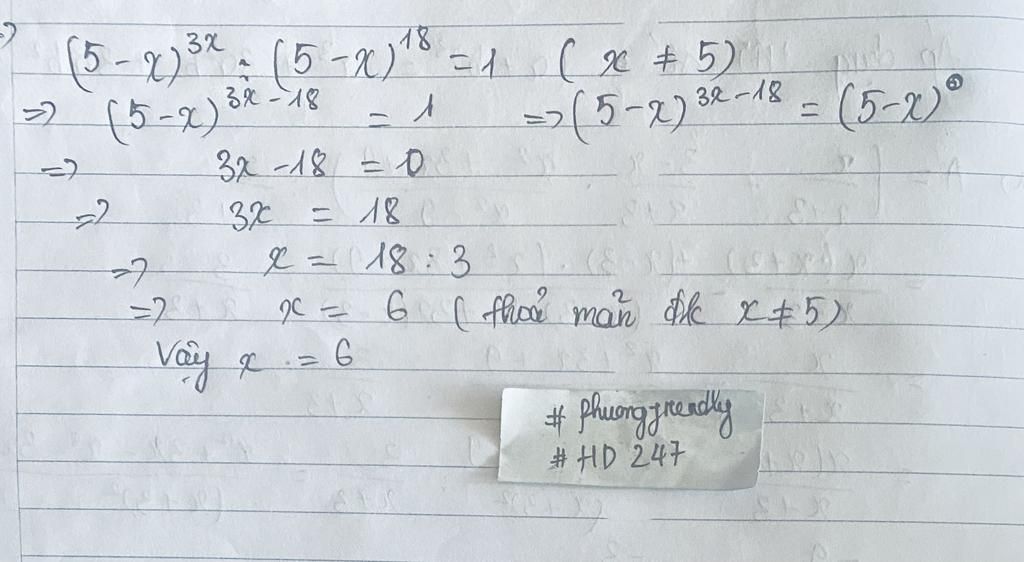 (5-x)^{3x} : (5-x)^{18} = 1 ( x ≠ 5)
=> (5-x)^{3x-18} = 1 => (5-x)^{3x-18} = (5-x)^0
=> 3x - 18 = 0
=> 3x = 18
=> x = 18 : 3
=> x = 6 ( thoả mãn đk x ≠ 5)
Vậy x = 6
# HD 247